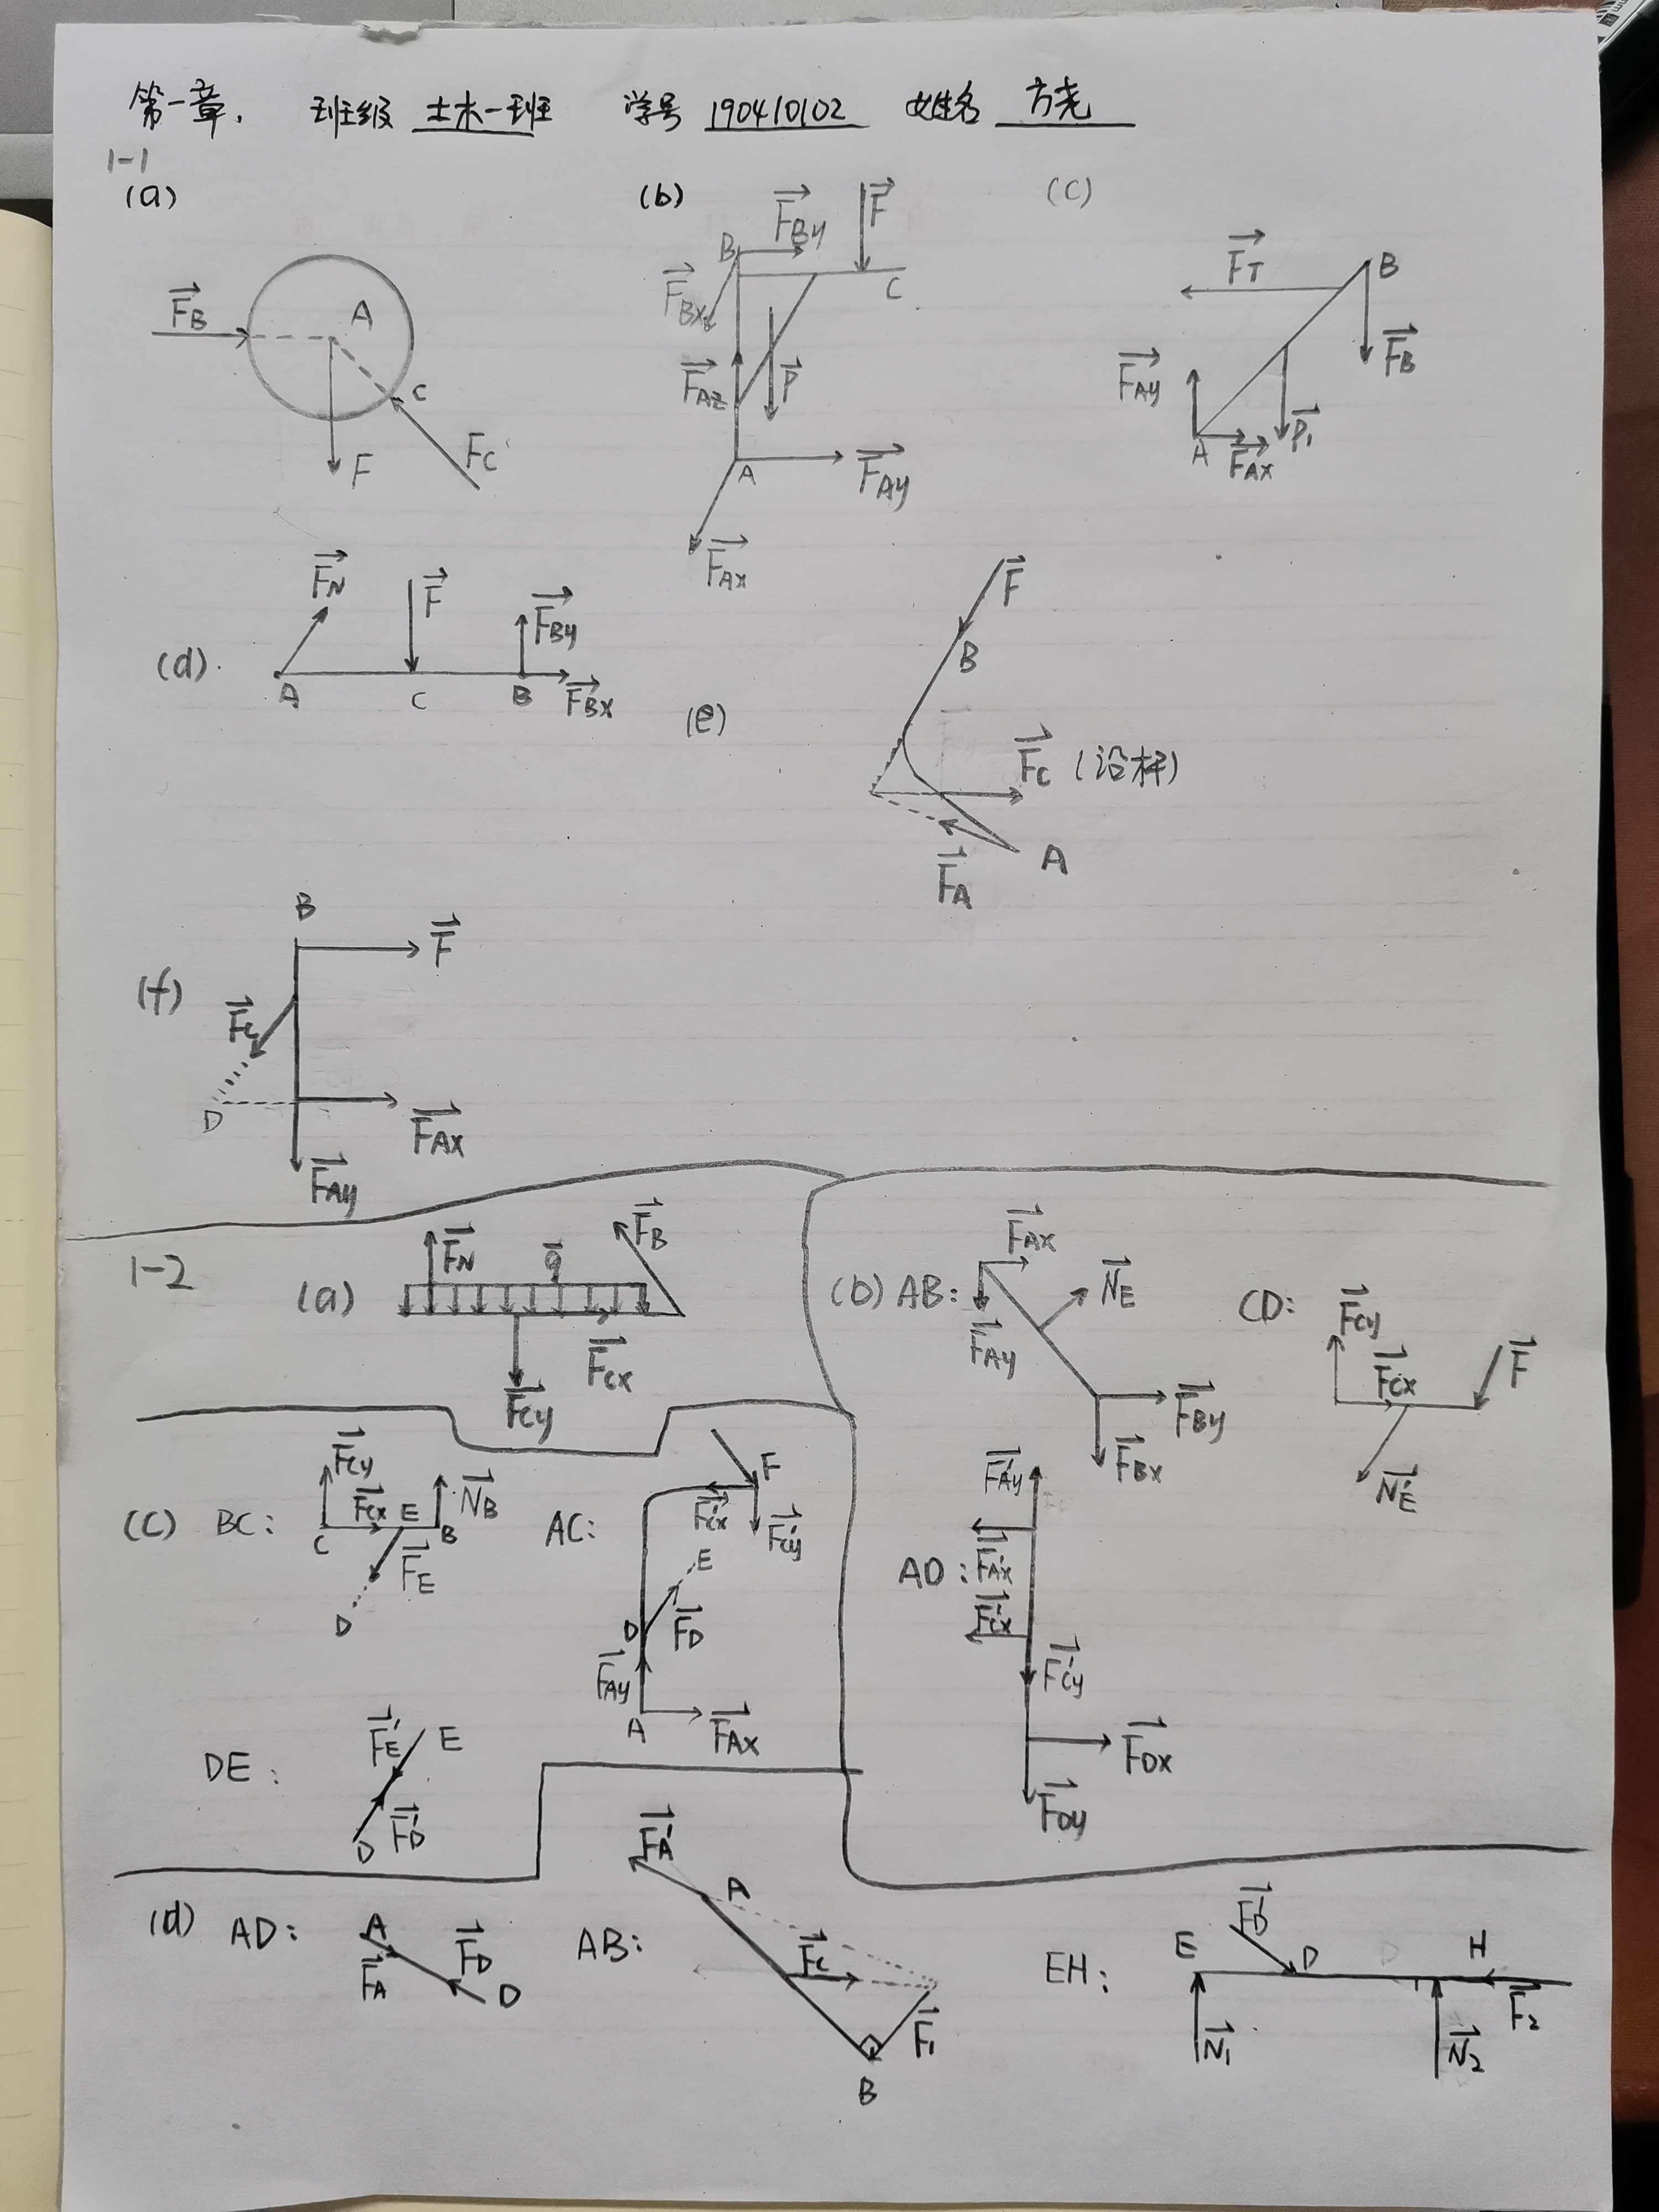 第一章. 班级 土木一班 学号 190410102 姓名 方尧
1-1
(a)
F_B
A
C
F
F_C
(b)
F_By
F
B
F_Bx
C
F_Az
P
A
F_Ay
F_Ax
(c)
F_T
B
F_B
F_Ay
A
F_Ax
P_1
(d).
F_N
F
F_By
A
C
B
F_Bx
(e)
F
B
F_C (沿杆)
F_A
A
(f)
B
F
F_C
D
F_Ax
F_Ay
1-2
(a)
F_N
q
F_B
F_Cx
F_Cy
(b) AB:
F_Ax
N_E
F_Ay
F_By
F_Bx
CD:
F_Cy
F_Cx
F
N'_E
AD:
F'_Ay
F'_Ax
F'_Cx
F'_Cy
F_Dx
F_Dy
(c) BC:
F_Cy
F_Cx
E
N_B
C
B
F_E
D
AC:
F
F'_Cx
F'_Cy
E
D
F_D
F_Ay
A
F_Ax
DE:
F'_E
E
D
F'_D
(d) AD:
A
F_A
F_D
D
AB:
F'_A
A
F_C
F_1
B
EH:
E
F'_D
D
H
N_1
N_2
F_2